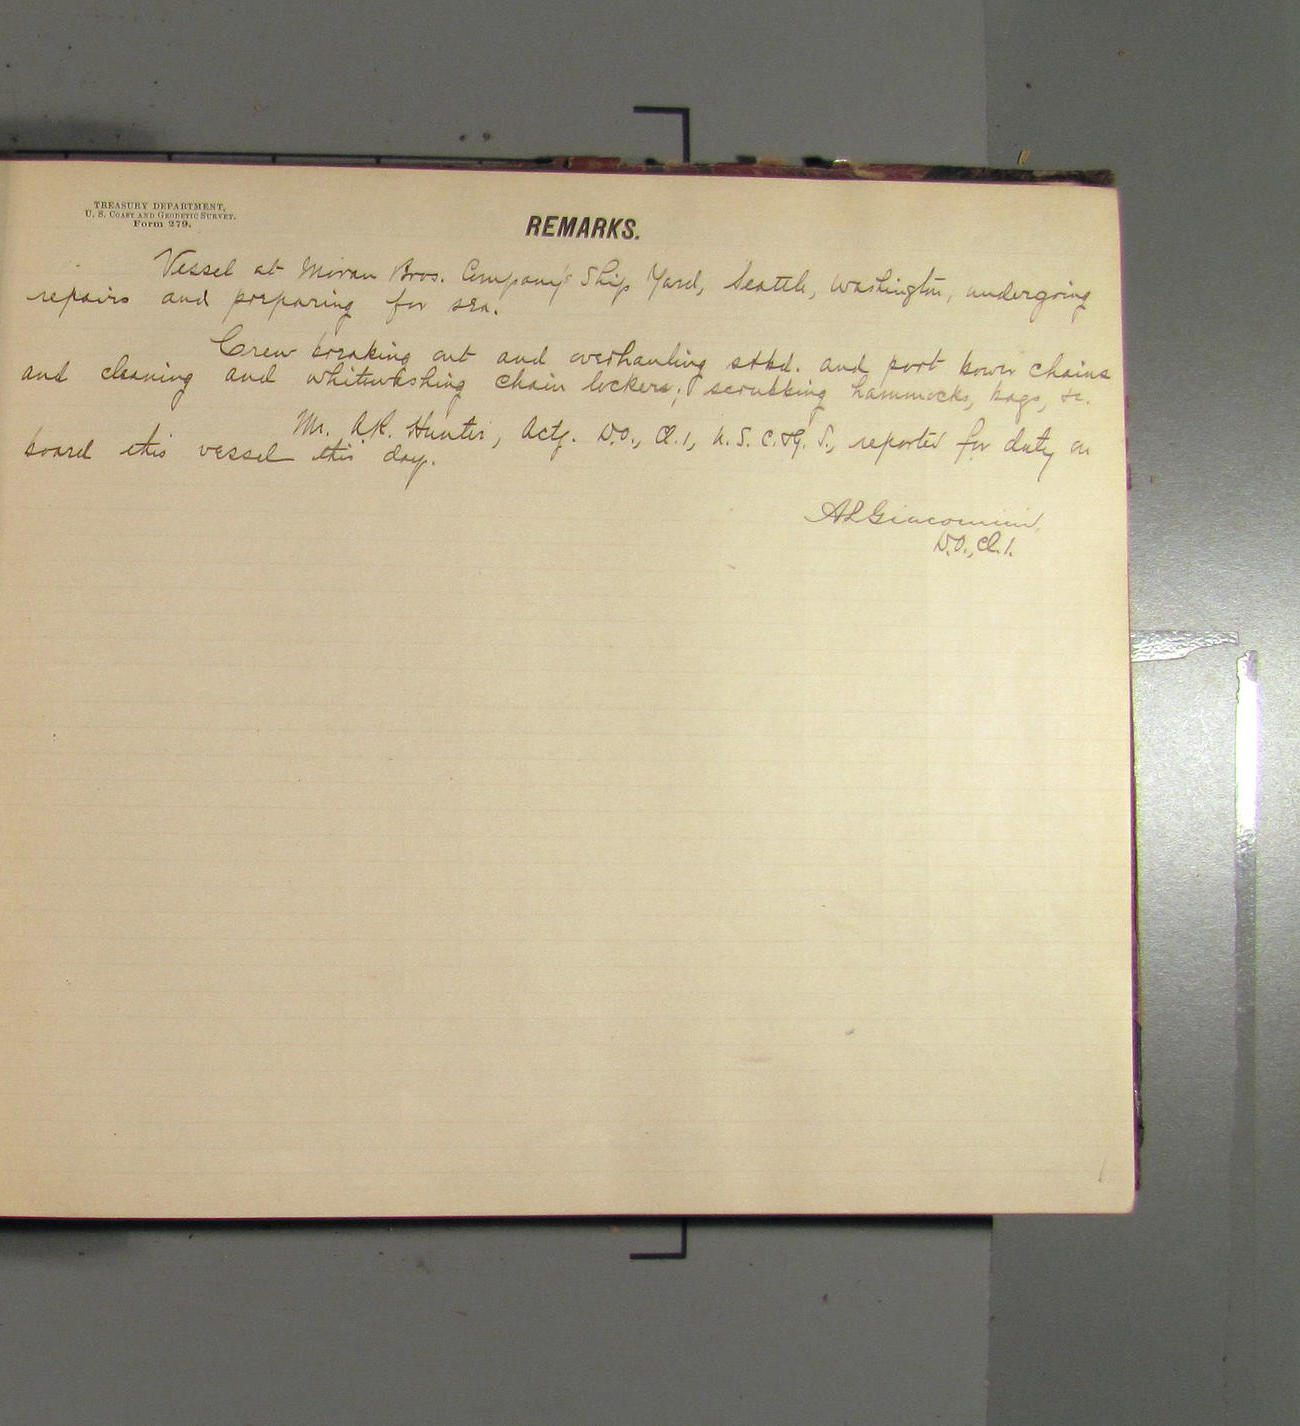 TREASURY DEPARTMENT,
U. S. COAST AND GEODETIC SURVEY.
Form 279.
REMARKS.
Vessel at Moran Bros. Company's Ship Yard, Seattle, Washington, undergoing
repairs and preparing for sea.
Crew breaking out and overhauling stbd. and port bower chains
and cleaning and whitewashing chain lockers; scrubbing hammocks, bags, &c.
Mr. A.R. Hunter, Actg. D.O., Cl. 1, U. S. C. & G. S., reported for duty on
board this vessel this day.
A L Giacomini,
D.O., Cl. 1.